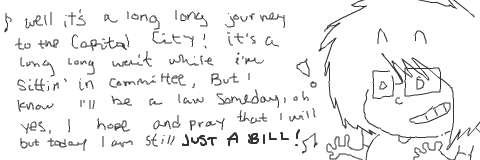 ♪ well it's a long long journey
to the Capital City! it's a
long long wait while i'm
Sittin' in committee, But I
know I'll be a law someday, oh
yes, I hope and pray that I will
but today I am still JUST A BILL!